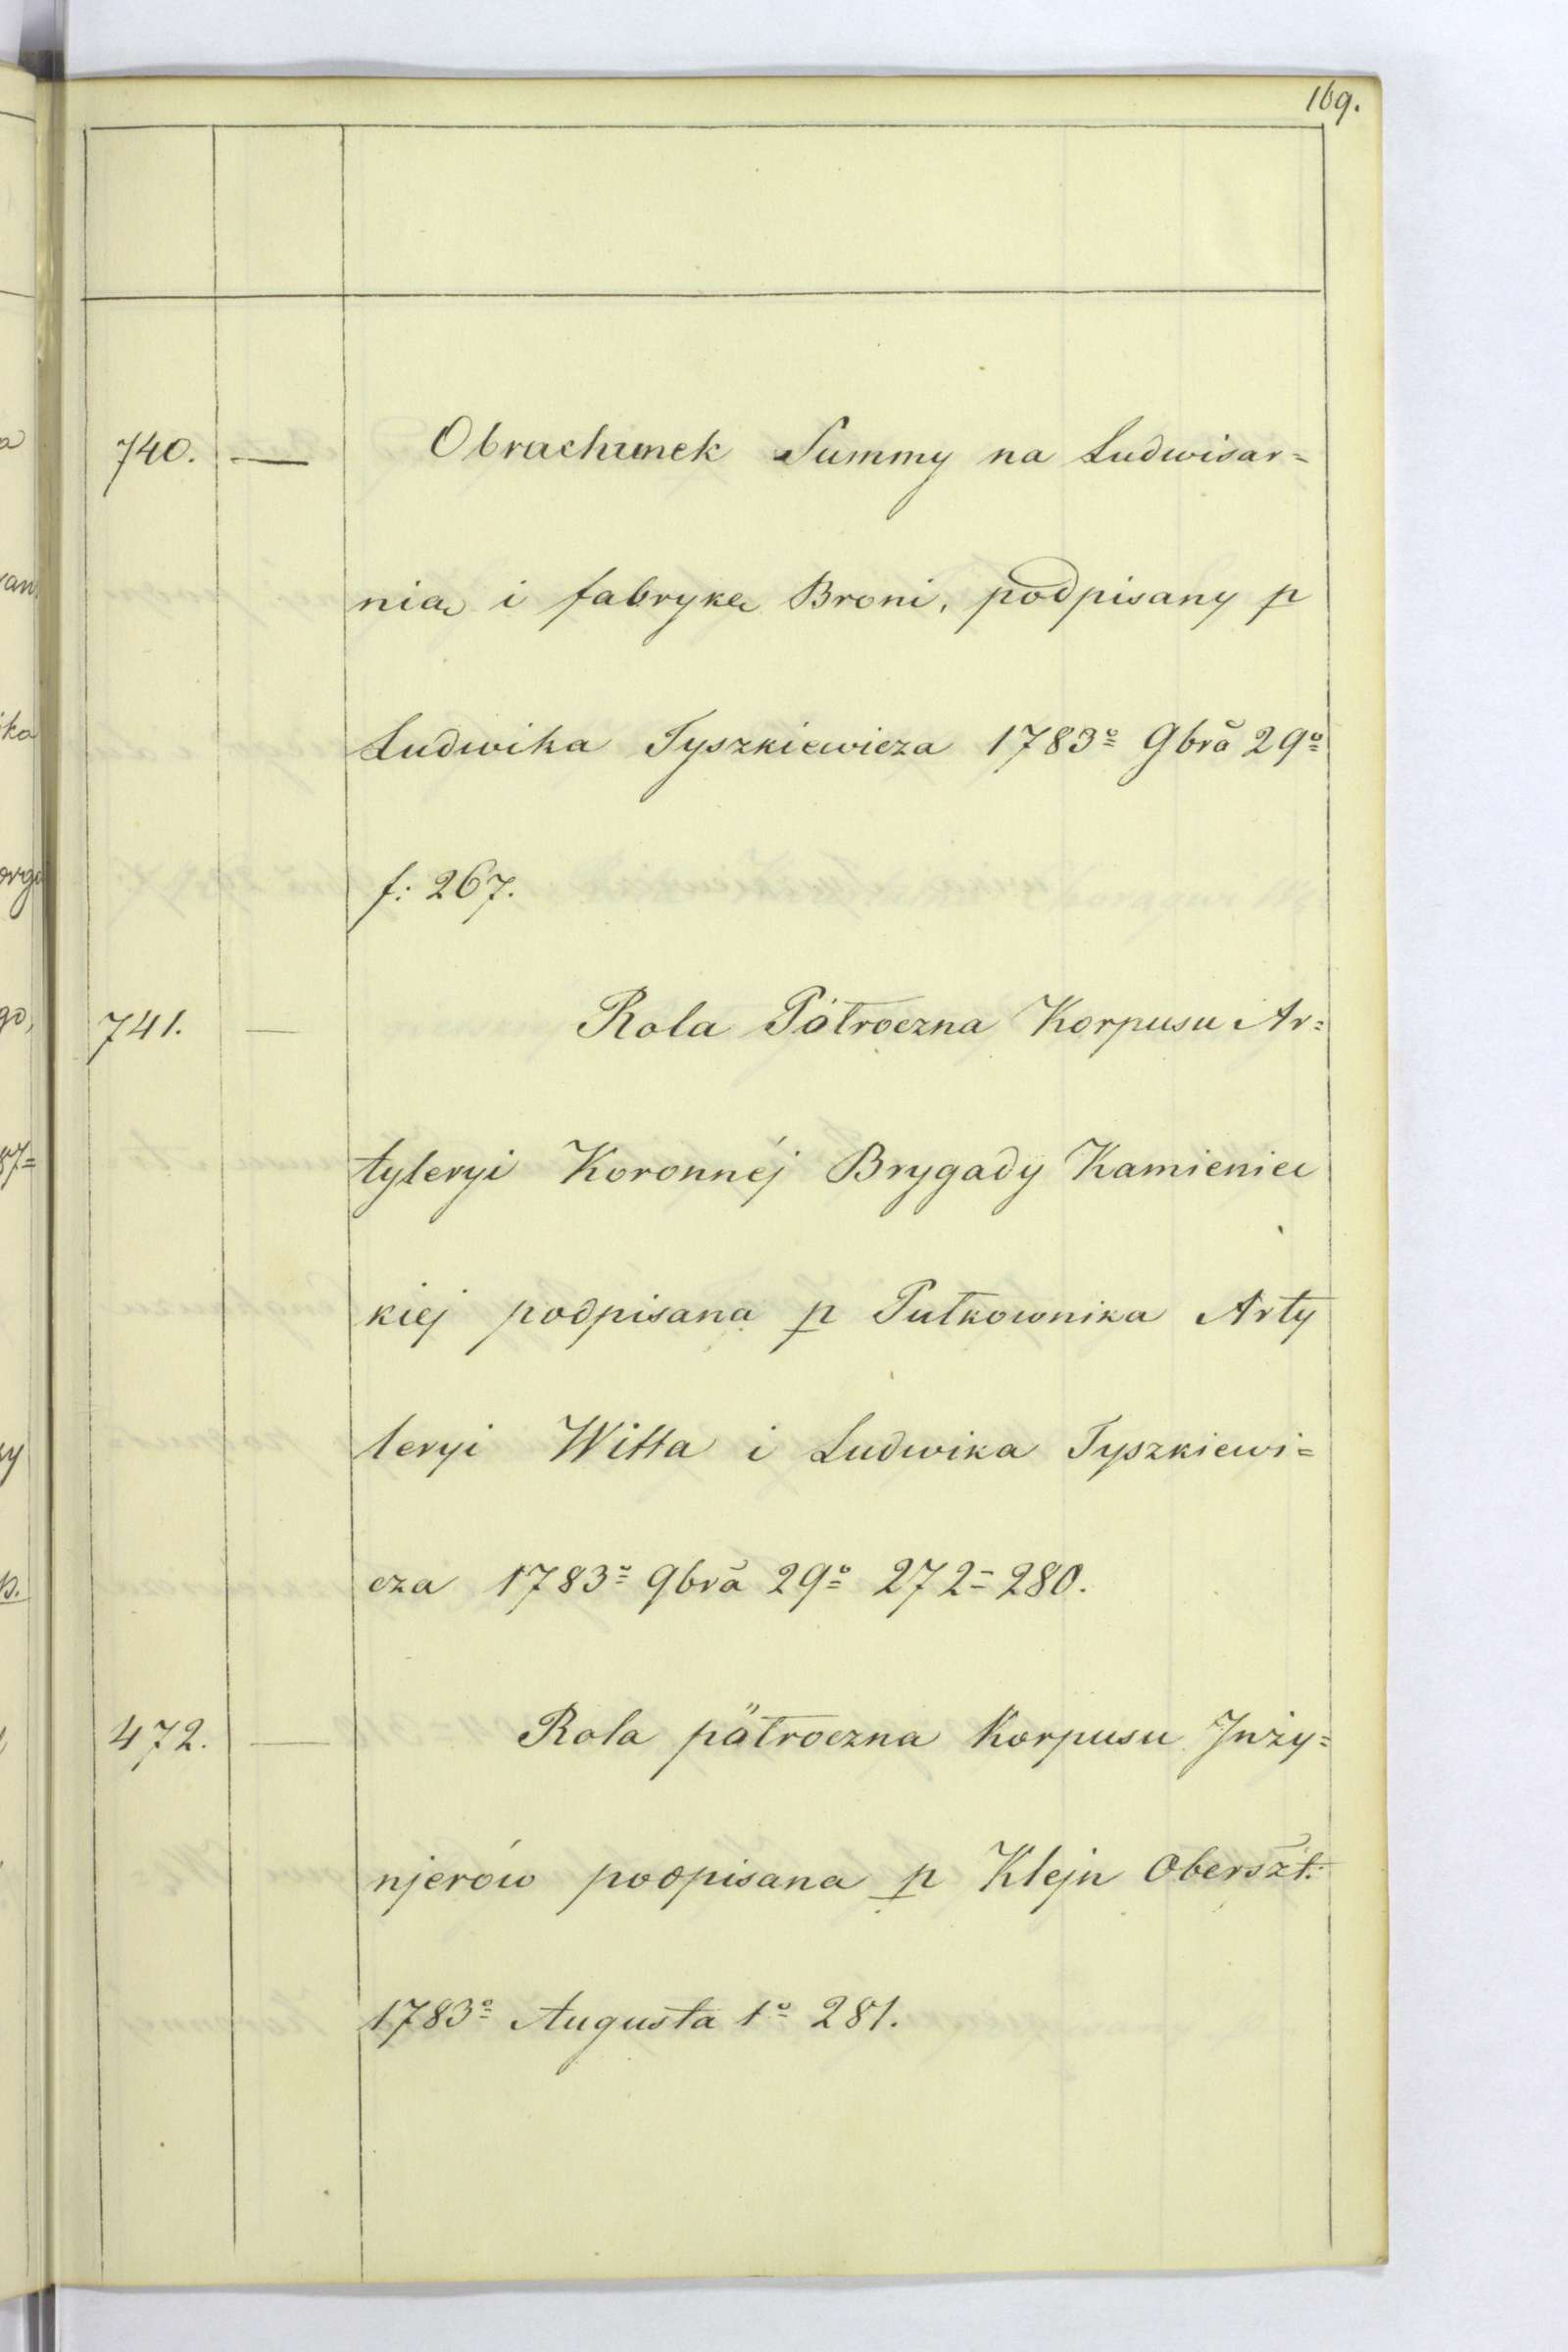 169.
740. — Obrachunek Summy na Ludwisar=
nią i fabrykę Broni, podpisany p
Ludwika Tyszkiewicza 1783º 9brã 29º
f: 267.
741. — Rola Pòłroczna Korpusu Ar=
tyleryi Koronnéj Brygady Kamieniec
kiej podpisana p Pułkownika Arty
leryi Witta i Ludwika Tyszkiewi=
cza 1783º 9brã 29º 272=280.
472. — Rola półroczna Korpusu Jnży=
njerów podpisana p Klejn Oberszt:
1783º Augusta 1º 281.